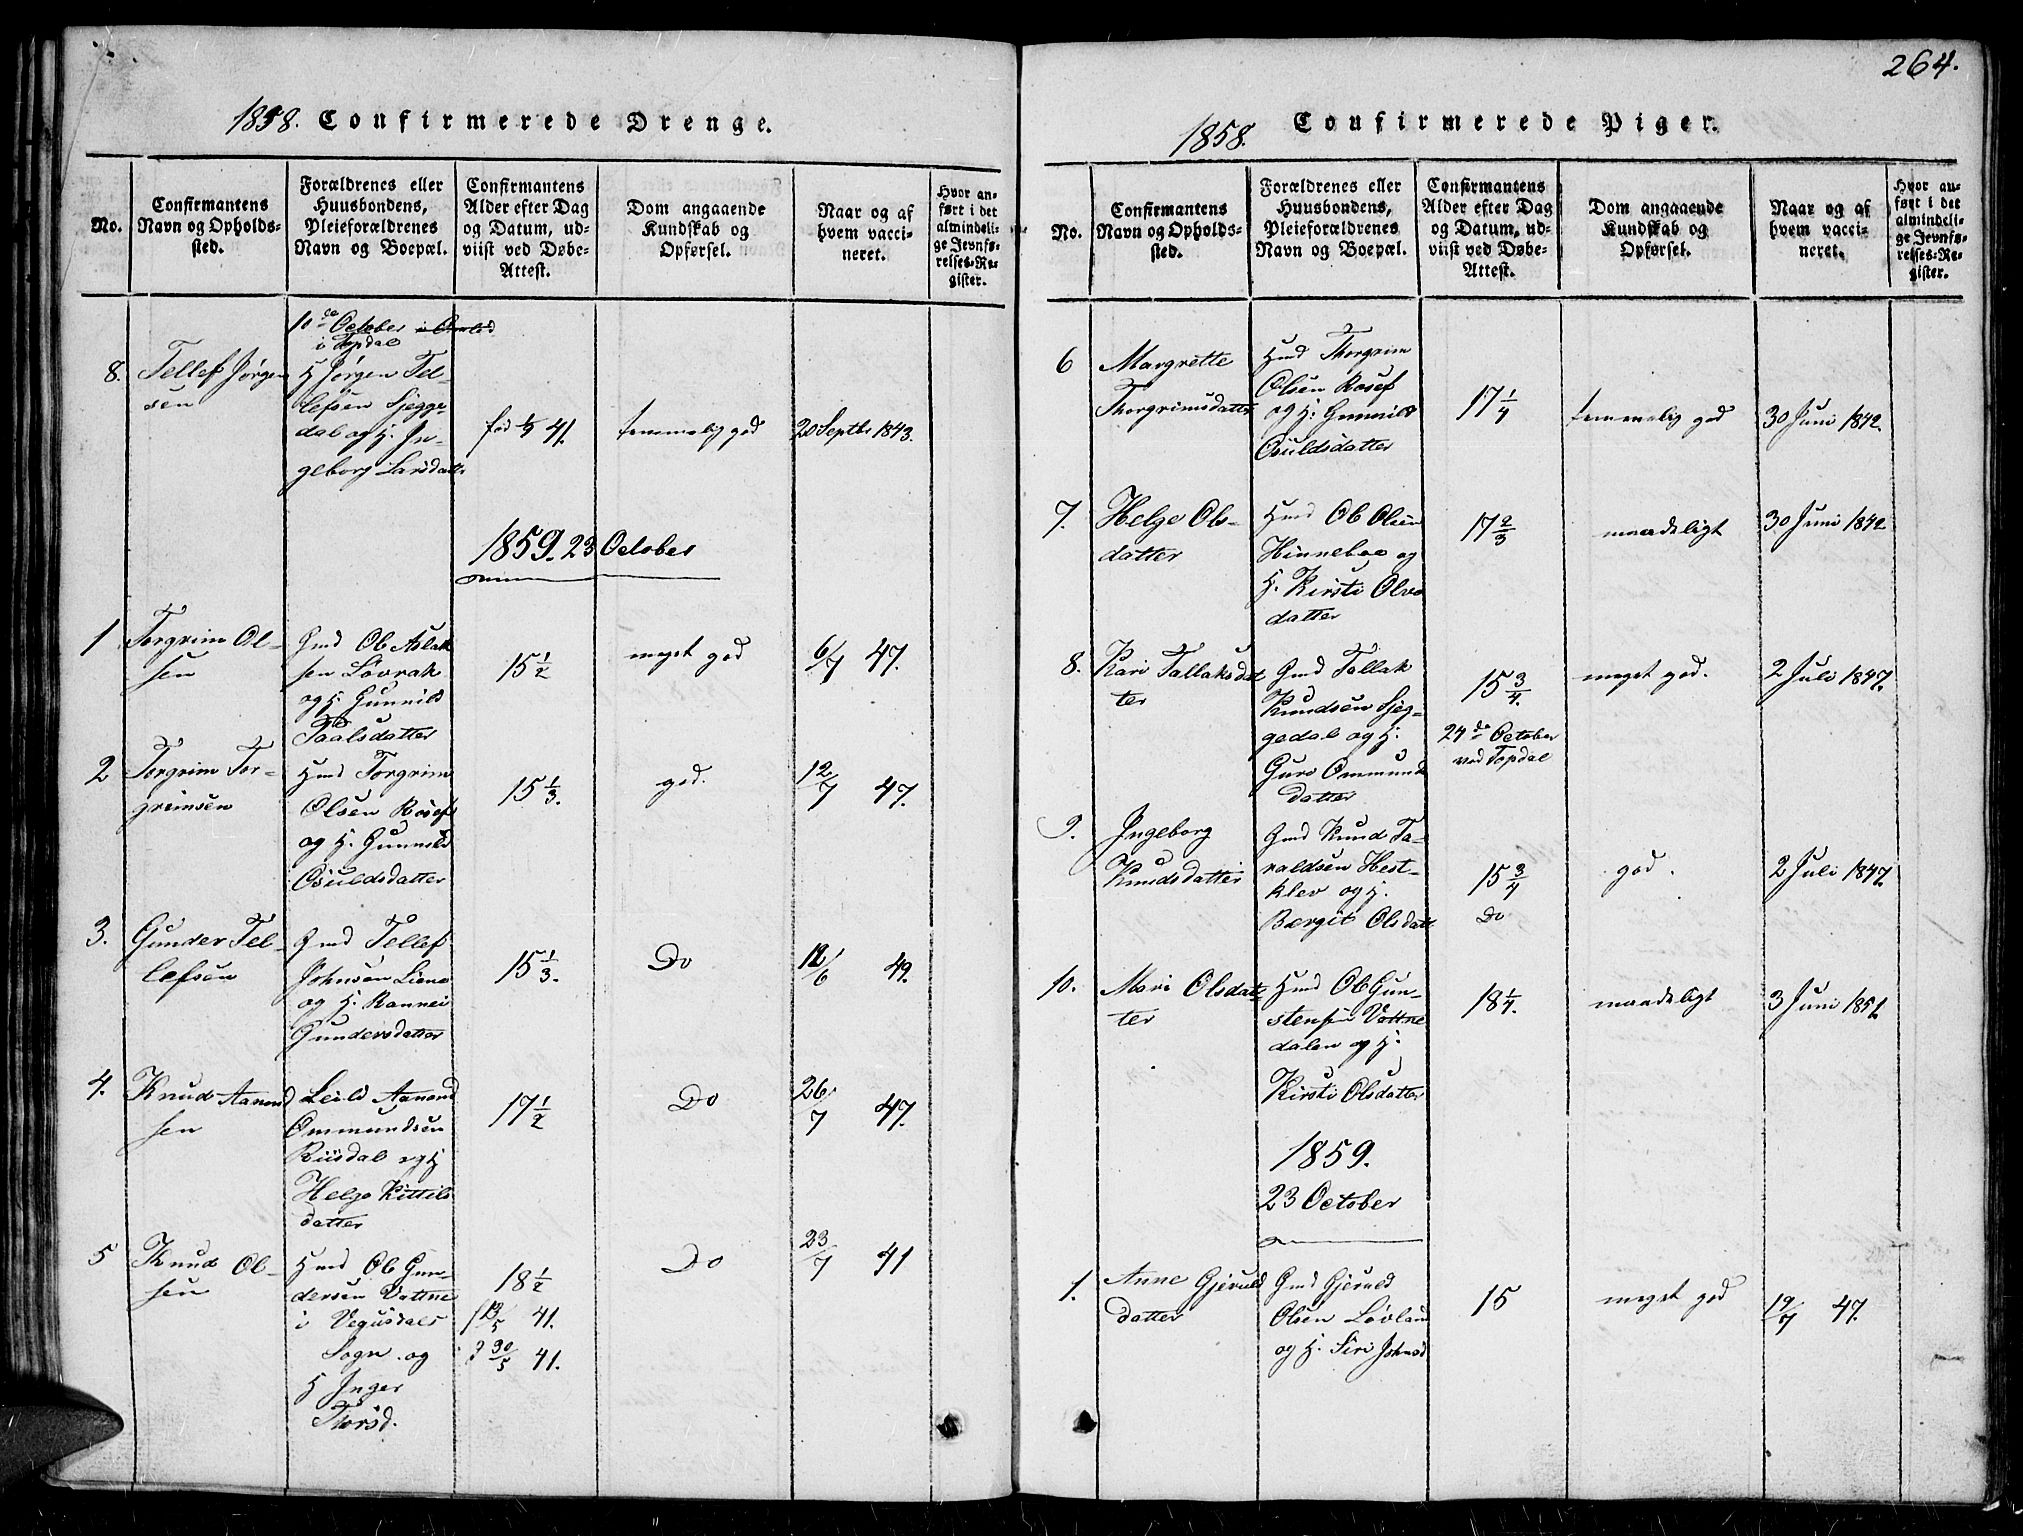 264.
1858. Confirmerede Drenge.
No.
Confirmantens
Navn og Opholds-
sted.
Forældrenes eller
Huusbondens,
Pleieforældrenes
Navn og Boepæl.
Confirmantens
Alder efter Dag
og Datum, ud-
viist ved Døbe-
Attest.
Dom angaaende
Kundskab og
Opførsel.
Naar og af
hvem vacci-
neret.
Hvor an-
ført i det
almindeli-
ge Jevnfø-
relses-Re-
gister.
10de October
i Topdal
8.
Tellef Jørgen
sen
H Jørgen Tel-
lefsen Sjegge-
dal og H. In-
geborg Larsdatter
fød 41.
temmelig god
20 Septbr 1843.
1859. 23 October
1
Torgrim Ol-
sen
Gmd Ol Aslak
sen Løvrak
og H. Gunnild
Taalsdatter
15 1/2
meget god
6/7 47.
2
Torgrim Tor-
grimsen
Hmd Torgrim
Olsen Rosef
og H. Gunnild
Osuldsdatter
15 1/3.
god.
12/7 47.
3.
Gunder Tel-
lefsen
Gmd Tellef
Johnsen Liene
og H. Rannei
Gundersdatter
15 1/3.
Do
12/6 49.
4.
Knud Aanond
sen
Leild Aanond
Ommundsen
Riisdal og H
Helge Kittils
datter
17 1/2
Do
26/7 47.
5
Knud Ol-
sen
Hmd Ol Gun-
dersen Vattne
i Vegusdals
Sogn og
H Inger
Thorsd.
18 1/2
12/5 41.
30/5 41.
Do
23/7 41
1858. Confirmerede Piger.
No.
Confirmantens
Navn og Opholds-
sted.
Forældrenes eller
Huusbondens,
Pleieforældrenes
Navn og Boepæl.
Confirmantens
Alder efter Dag
og Datum, ud-
viist ved Døbe-
Attest.
Dom angaaende
Kundskab og
Opførsel.
Naar og af
hvem vacci-
neret.
Hvor an-
ført i det
almindeli-
ge Jevnfø-
relses-Re-
gister.
6
Margrette
Thorgrimsdatter
Hmd Thorgrim
Olsen Rosef
og H. Gunnild
Osuldsdatter
17 1/4
temmelig god
30 Juni 1842.
7.
Helge Ols-
datter
Hmd Ol Olsen
Hinneboe og
H. Kirsti Olvs
datter
17 2/3
maadeligt
30 Juni 1842
8.
Kari Tallaksdat
ter
Gmd Tallak
Knudsen Sjeg-
gedal og H.
Guro Ommunds
datter
15 3/4.
24de October
ved Topdal
meget god.
2 Juli 1847.
9.
Ingeborg
Knudsdatter
Gmd Knud Ta-
raldsen Hest-
klev og H.
Bergit Olsdatt
15 3/4
Do
god.
2 Juli 1847.
10.
Mari Olsdat-
ter
Hmd Ol Gun-
stensen Vattne
dalen og H.
Kirsti Olsdatter
18 1/4.
maadeligt
3 Juni 1851.
1859.
23 October
1.
Anne Gjeruld
datter
Gmd Gjeruld
Olsen Løvland
og H. Siri Johnsd
15
meget god
19/7 47.